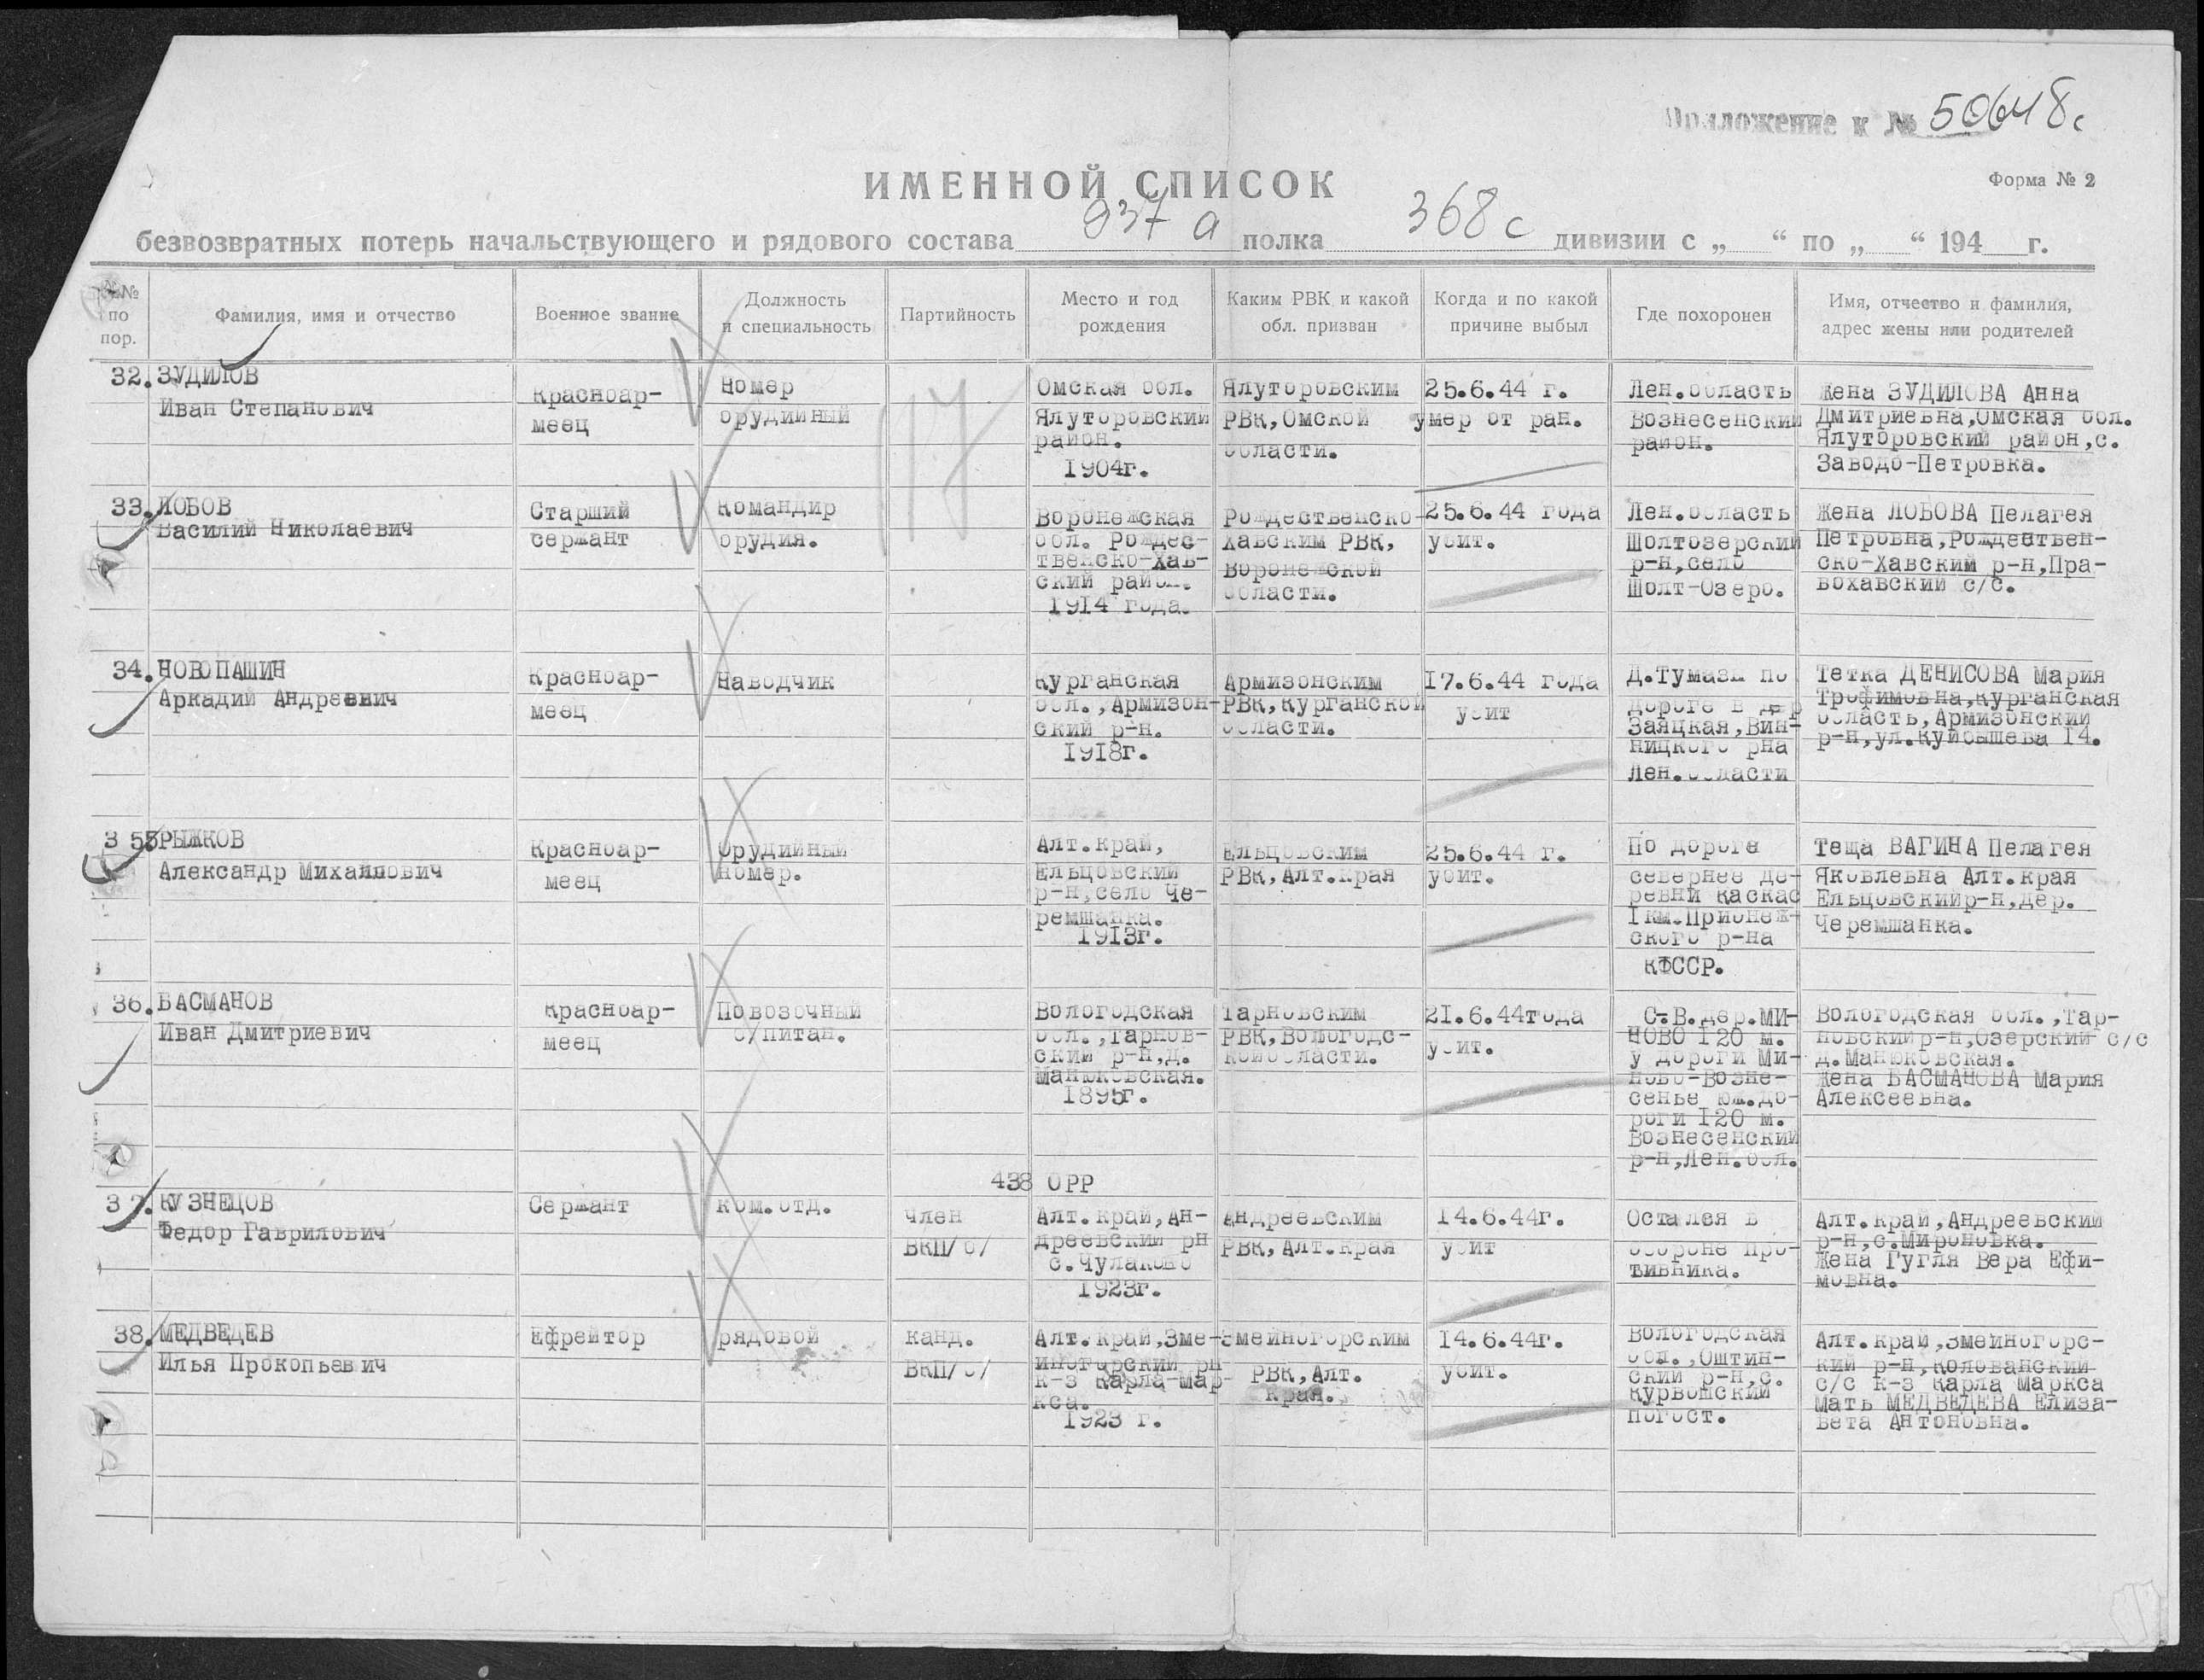 Приложение к № 50648с
ИМЕННОЙ СПИСОК
Форма № 2
безвозвратных потерь начальствующего и рядового состава 937 а полка 368 с дивизии с „ “ по „ “ 194 г.
№№ по пор.
Фамилия, имя и отчество
Военное звание
Должность и специальность
Партийность
Место и год рождения
Каким РВК и какой обл. призван
Когда и по какой причине выбыл
Где похоронен
Имя, отчество и фамилия, адрес жены или родителей
117
32. ЗУДИЛОВ
Иван Степанович
Красноар-
меец
Номер
орудийный
Омская обл.
Ялуторовский
район.
1904г.
Ялуторовским
РВК, Омской
области.
25.6.44 г.
умер от ран.
Лен.область
Вознесенский
район.
Жена ЗУДИЛОВА Анна
Дмитриевна,Омская обл.
Ялуторовский район,с.
Заводо-Петровка.
33. ЛОБОВ
Василий Николаевич
Старший
сержант
Командир
орудия.
Воронежская
обл. Рождес-
твенско-Хав-
ский район.
1914 года.
Рождественско-
Хавским РВК,
Воронежской
области.
25.6.44 года
убит.
Лен.область
Шолтозерский
р-н,село
Шолт-Озеро.
Жена ЛОБОВА Пелагея
Петровна,Рождествен-
ско-Хавский р-н,Пра-
вохавский с/с.
34. НОВОПАШИН
Аркадий Андреевич
Красноар-
меец
Наводчик
Курганская
обл.,Армизон-
ский р-н.
1918г.
Армизонским
РВК,Курганской
области.
17.6.44 года
убит
Д.Тумазы по
дороге в дер
Заяцкая,Вин-
ницкого рна
Лен.области
Тетка ДЕНИСОВА Мария
Трофимовна,Курганская
область,Армизонский
р-н,ул.Куйбышева 14.
3 55 РЫЖКОВ
Александр Михайлович
Красноар-
меец
Орудийный
номер.
Алт.край,
Ельцовский
р-н,село Че-
ремшанка.
1913г.
Ельцовским
РВК,Алт.края
25.6.44 г.
убит.
По дороге
севернее де-
ревни Каскас
1км.Прионеж-
ского р-на
КФССР.
Теща ВАГИНА Пелагея
Яковлевна Алт.края
Ельцовскийр-н,дер.
Черемшанка.
36. БАСМАНОВ
Иван Дмитриевич
Красноар-
меец
Повозочный
б/питан.
Вологодская
обл.,Тарнов-
ский р-н,д.
Манюковская.
1895г.
Тарновским
РВК,Вологодс-
койобласти.
21.6.44года
убит.
С-В.дер.МИ-
НОВО 120 м.
у дороги Ми-
ново-Возне-
сенье юж.до-
роги 120 м.
Вознесенский
р-н,Лен.обл.
Вологодская обл.,Тар-
новскийр-н,Озерский с/с
д.Манюковская.
Жена БАСМАНОВА Мария
Алексеевна.
438 ОРР
37. КУЗНЕЦОВ
Федор Гаврилович
Сержант
Ком.отд.
член
ВКП/б/
Алт.край,Ан-
дреевский рн
с.Чулаково
1923г.
Андреевским
РВК,Алт.края
14.6.44г.
убит
Остался в
обороне про-
тивника.
Алт.край,Андреевский
р-н,с.Мироновка.
Жена Гугля Вера Ефи-
мовна.
38. МЕДВЕДЕВ
Илья Прокопьевич
Ефрейтор
рядовой
канд.
ВКП/б/
Алт.край,Зме-
иногорский рн
к-з Карла-Мар-
кса.
1923 г.
Змеиногорским
РВК,Алт.
края.
14.6.44г.
убит.
Вологодская
обл.,Оштин-
ский р-н,с.
Курвошский
погост.
Алт.край,Змеиногорс-
кий р-н,Колованский
с/с к-з Карла Маркса
Мать МЕДВЕДЕВА Елиза-
вета Антоновна.